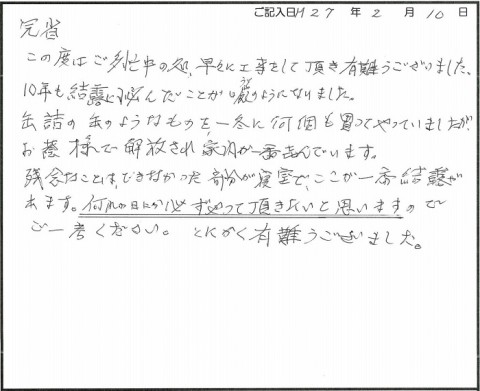 ご記入日 H27 年 2 月 10 日
完省
この度はご多忙中の処、早々に工事をして頂き有難うございました。
10年も結露に悩んだことが嘘のようになりました。
缶詰の缶のようなものを一冬に何個も買ってやっていましたが
お蔭様で解放され家内が一番喜んでいます。
残念なことは、できなかった部分が寝室で、ここが一番結露が
出ます。何れの日にか必ずやって頂きたいと思いますので
ご一考ください。とにかく有難うございました。